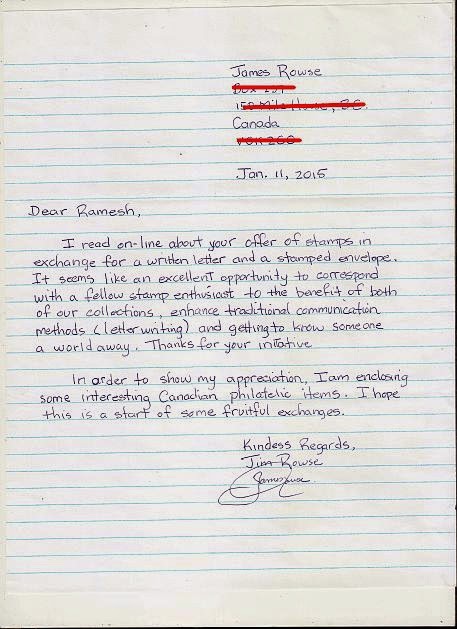 James Rowse
Canada
Jan. 11, 2015
Dear Ramesh,
I read on-line about your offer of stamps in
exchange for a written letter and a stamped envelope.
It seems like an excellent opportunity to correspond
with a fellow stamp enthusiast to the benefit of both
of our collections, enhance traditional communication
methods (letter writing) and getting to know someone
a world away. Thanks for your initative
In order to show my appreciation, I am enclosing
some interesting Canadian philatelic items. I hope
this is a start of some fruitful exchanges.
Kindess Regards,
Jim Rowse